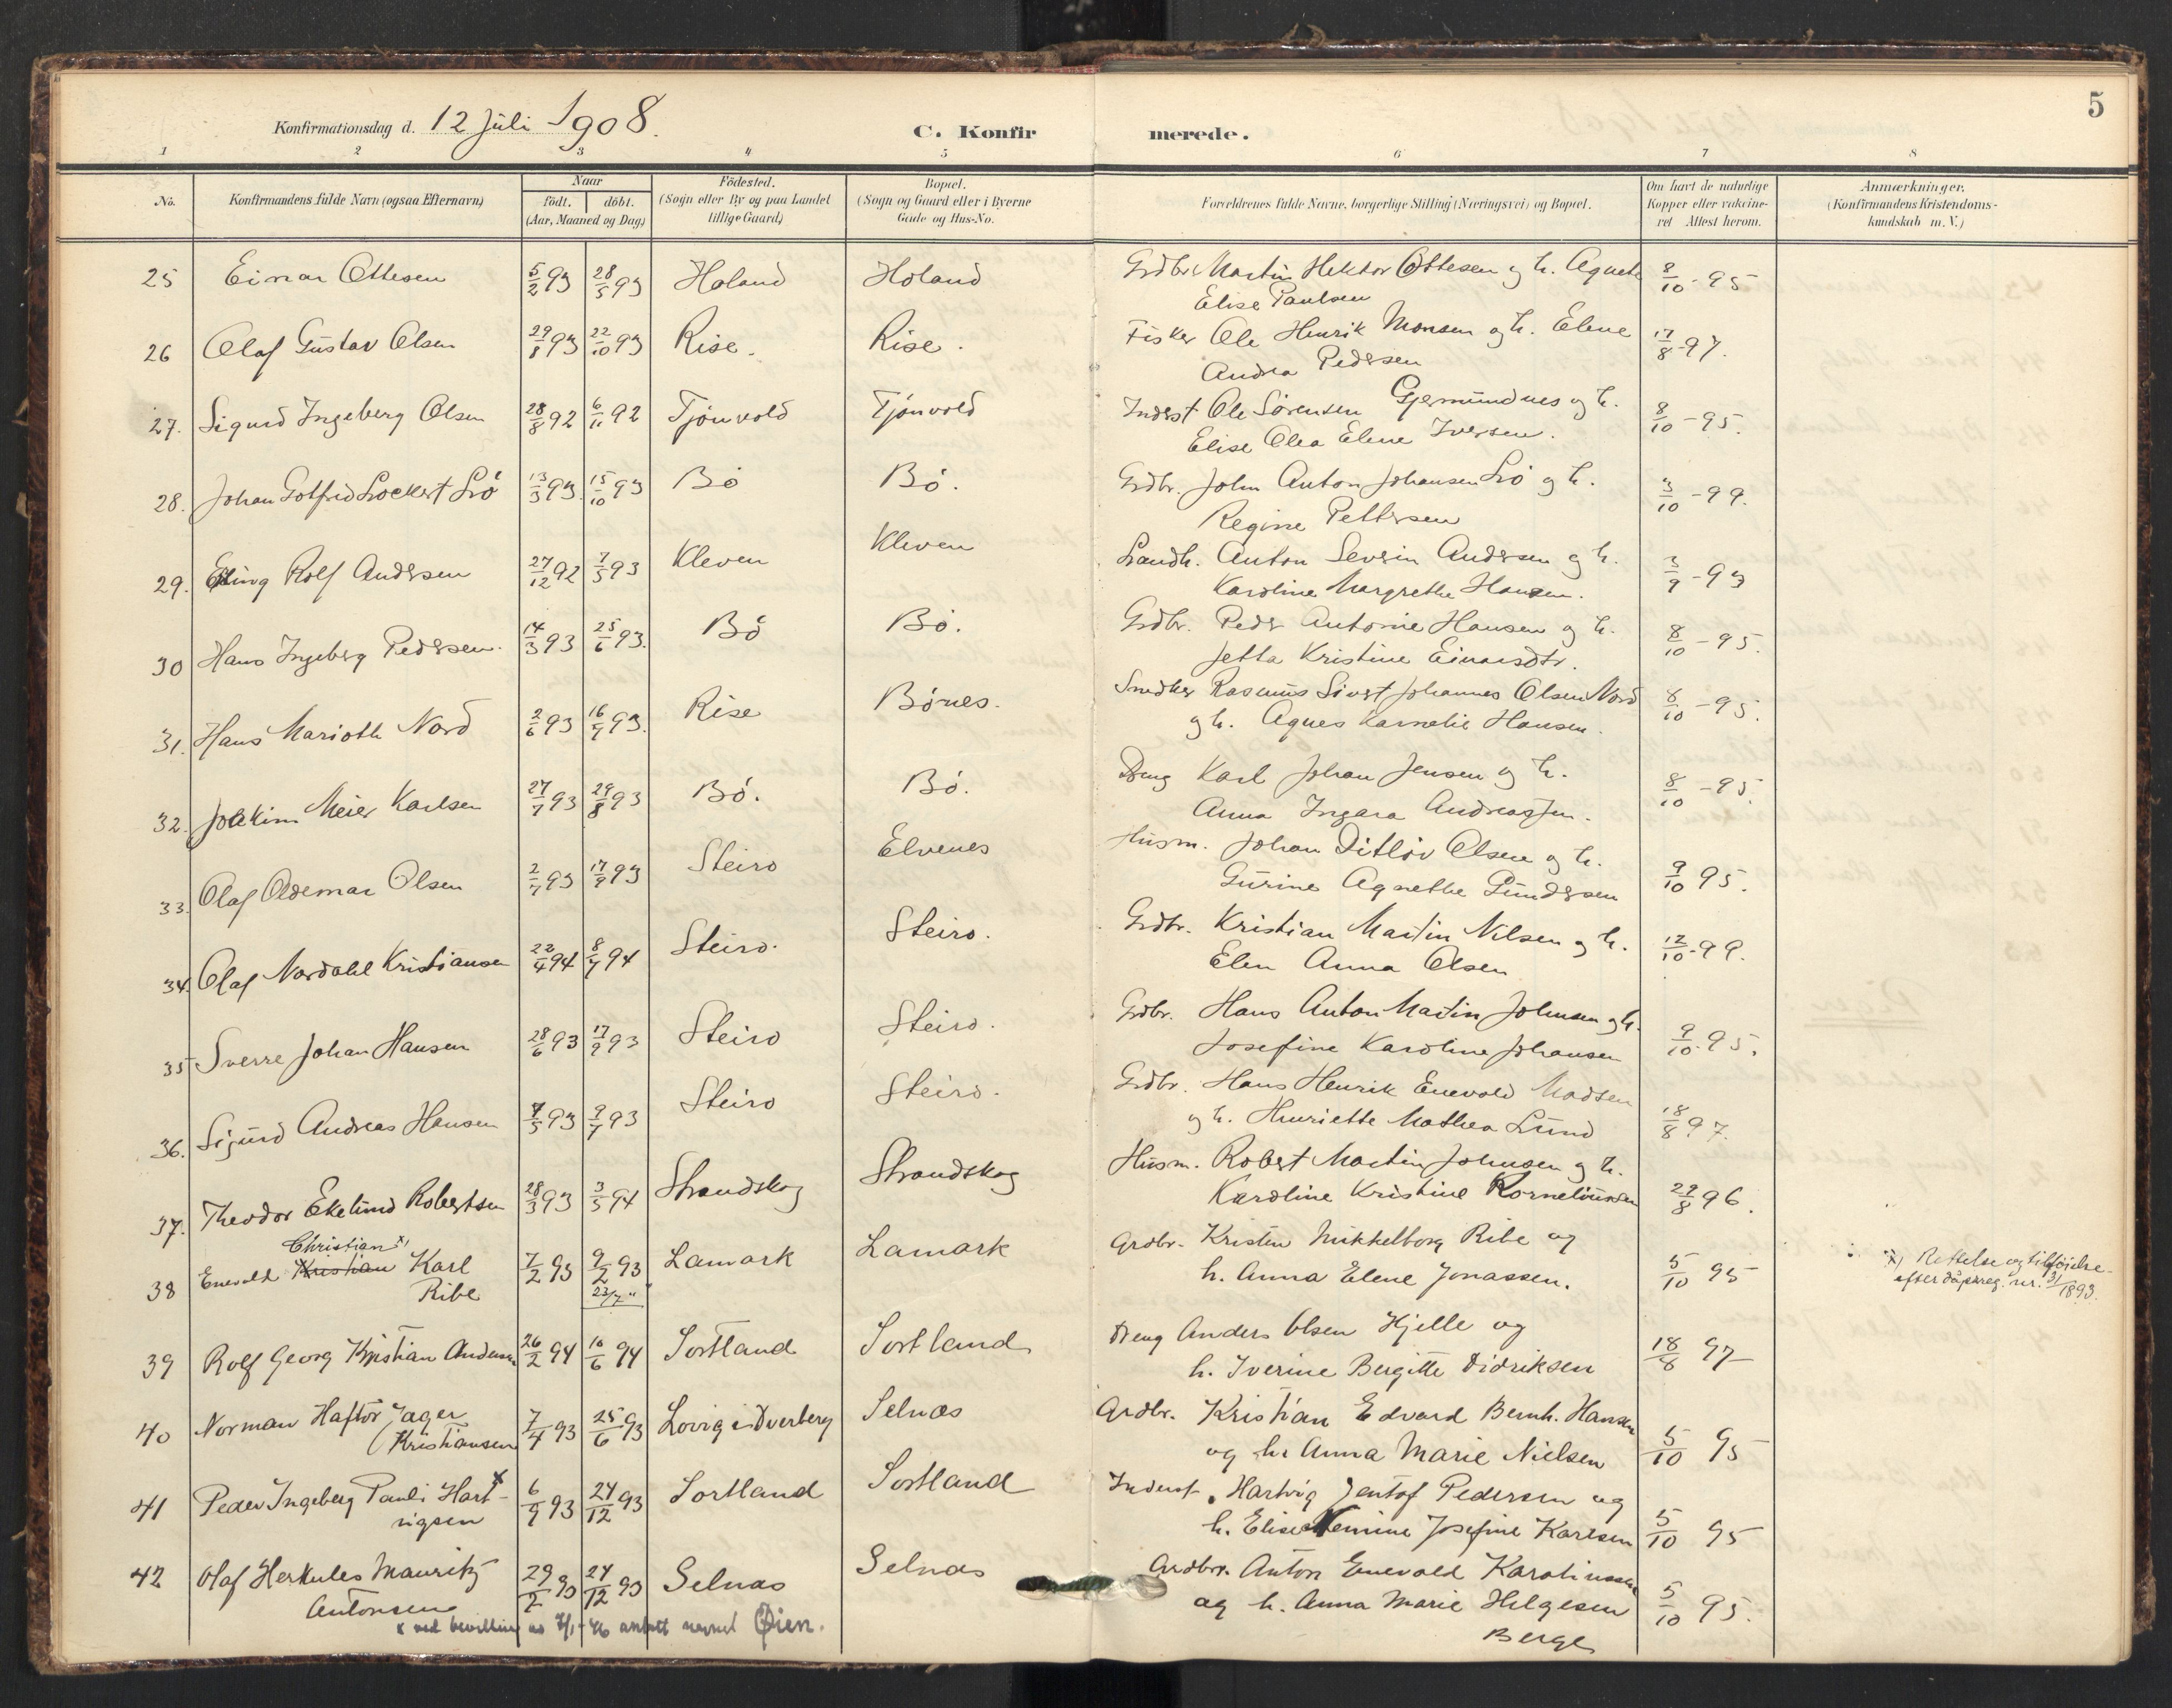 5
Konfirmationsdag d. 12 Juli 1908.
C. Konfirmerede.
1 2 3 4 5 6 7 8
No. Konfirmandens fulde Navn (ogsaa Efternavn) Naar födt. döbt. (Aar, Maaned og Dag) Födested. (Sogn eller By og paa Landet tillige Gaard) Bopæl. (Sogn og Gaard eller i Byerne Gade og Hus-No. Forældrenes fulde Navne, borgerlige Stilling (Næringsvei) og Bopæl. Om havt de naturlige Kopper eller vakcineret Attest herom. Anmærkninger. (Konfirmandens Kristendomskundskab m.V.)
25 Einar Ottesen 5/2 93 28/5 93 Holand Holand Grdbr. Martin Hektor Ottesen og h. Agnete 8/10 - 95
Elise Paulsen
26 Olaf Gustav Olsen 29/8 93 22/10 93 Rise. Rise. Fisker Ole Henrik Monsen og h. Elene 17/8 - 97.
Andrea Pedersen
27. Sigurd Ingeberg Olsen 28/8 92 6/11 92 Tjönvold Tjönvold Inderst Ole Sørensen Gjermundnes og h. 8/10 - 95.
Elise Olea Elene Iversen.
28. Johan Gotfred Lockert Lrö 13/3 93 15/10 93 Bö Bö. Grdbr. John Anton Johansen Lrö og h. 3/10 - 99.
Regine Pettersen
29. Erling Rolf Andersen 27/12 92 7/5 93 Kleven Kleven Landh. Anton Severin Andersen og h. 3/9 - 93
Karoline Margrethe Hansen.
30 Hans Ingeberg Pedersen. 14/3 93 25/6 93. Bö Bö. Grdbr. Peder Antonie Hansen og h. 8/10 - 95.
Jetta Kristine Einarsdtr.
31. Hans Marioth Nord 2/6 93 16/7 93. Rise Börnes. Snedker Rasmus Sivert Johannes Olsen Nord 8/10 - 95.
og h. Agnes Karnelie Hansen.
32. Joakim Meier Karlsen 27/7 93 29/8 93 Bö. Bö. Dreng Karl Johan Jensen og h. 8/10 - 95.
Anna Ingara Andreassen.
33. Olaf Aldemar Olsen 2/7 93 17/9 93 Steiro Elvenes Husm. Johan Ditlöv Olsen og h. 9/10 95.
Gurine Agnethe Gundersen
34. Olaf Nordahl Kristiansen 22/4 94 8/7 94 Steiro. Steiro. Grdbr. Kristian Martin Nilsen og h. 12/10 - 99.
Elen Anna Olsen
35 Sverre Johan Hansen 28/6 93 17/9 93 Steiro Steiro. Grdbr. Hans Anton Martin Johnsen og h. 9/10 - 95.
Josefine Karoline Johansen
36. Sigurd Andreas Hansen 7/5 93 9/7 93 Steiro Steiro. Grdbr. Hans Henrik Enevold Madsen 18/8 97.
og h. Henriette Mathea Lund
37. Theodor Ekelund Robertsen 28/3 93 3/5 94 Strandskog Strandskog Husm. Robert Martin Johnsen og h. 29/8 96.
Karoline Kristine Korneliussen
Christian x)
38 Enevold Kristian Karl Ribe 7/2 93 9/2 93 23/7 " Lamark Lamark Grdbr. Kristen Mikkelborg Ribe og 5/10 95 x) Rettelse og tilföielse
h. Anna Elene Jonassen. efter dåpsreg. nr. 31/1893.
39 Rolf Georg Kristian Andersen 26/2 94 10/6 94 Sortland Sortland Dreng Anders Olsen Hjelle og 18/8 97
h. Iverine Bergitte Didriksen
40 Norman Haftor Jager Kristiansen 7/4 93 25/6 93 Lovig i Dverberg Selnæs Grdbr. Kristian Edvard Bernh. Hansen 5/10 95
og h. Anna Marie Nielsen
41 Peder Ingeberg Pauli Hart-x 6/9 93 24/12 93 Sortland Sortland Inderst. Hartvig Jentof Pedersen og 5/10 95
vigsen h. Elise Nemine Josefine Karlsen
42 Olaf Herkules Mauritz 29/7 93 24/12 93 Selnæs Selnæs Grdbr. Anton Enevold Karolinussen 5/10 95.
Antonsen og h. Anna Marie Helgesen
Berge
x ved bevilling av 7/1-46 antatt navnet Öien.